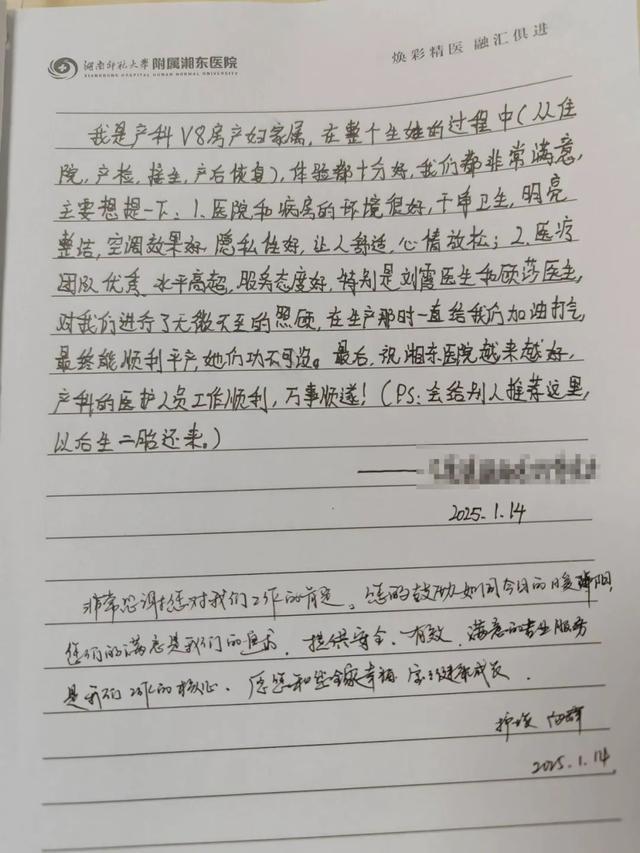 湖南师范大学 附属湘东医院
XIANGDONG HOSPITAL HUNAN NORMAL UNIVERSITY
焕彩精医 融汇俱进
我是产科V8房产妇家属,在整个生娃的过程中(从住
院,产检,接生,产后恢复),体验都十分好,我们都非常满意,
主要想提一下:1.医院和病房的环境很好,干净卫生,明亮
整洁,空调效果好,隐私性好,让人舒适,心情放松;2.医疗
团队优秀,水平高超,服务态度好,特别是刘霞医生和顾莎医生,
对我们进行了无微不至的照顾,在生产那时一直给我们加油打气,
最终能顺利平产,她们功不可没。最后,祝湘东医院越来越好,
产科的医护人员工作顺利,万事顺遂!(PS:会给别人推荐这里,
以后生二胎还来。)
2025.1.14
非常感谢您对我们工作的肯定。您的鼓励如同今日的暖阳,
您们的满意是我们的追求,提供安全、有效、满意的专业服务
是我们工作的核心。愿您和您全家幸福,宝宝健康成长。
2025.1.14